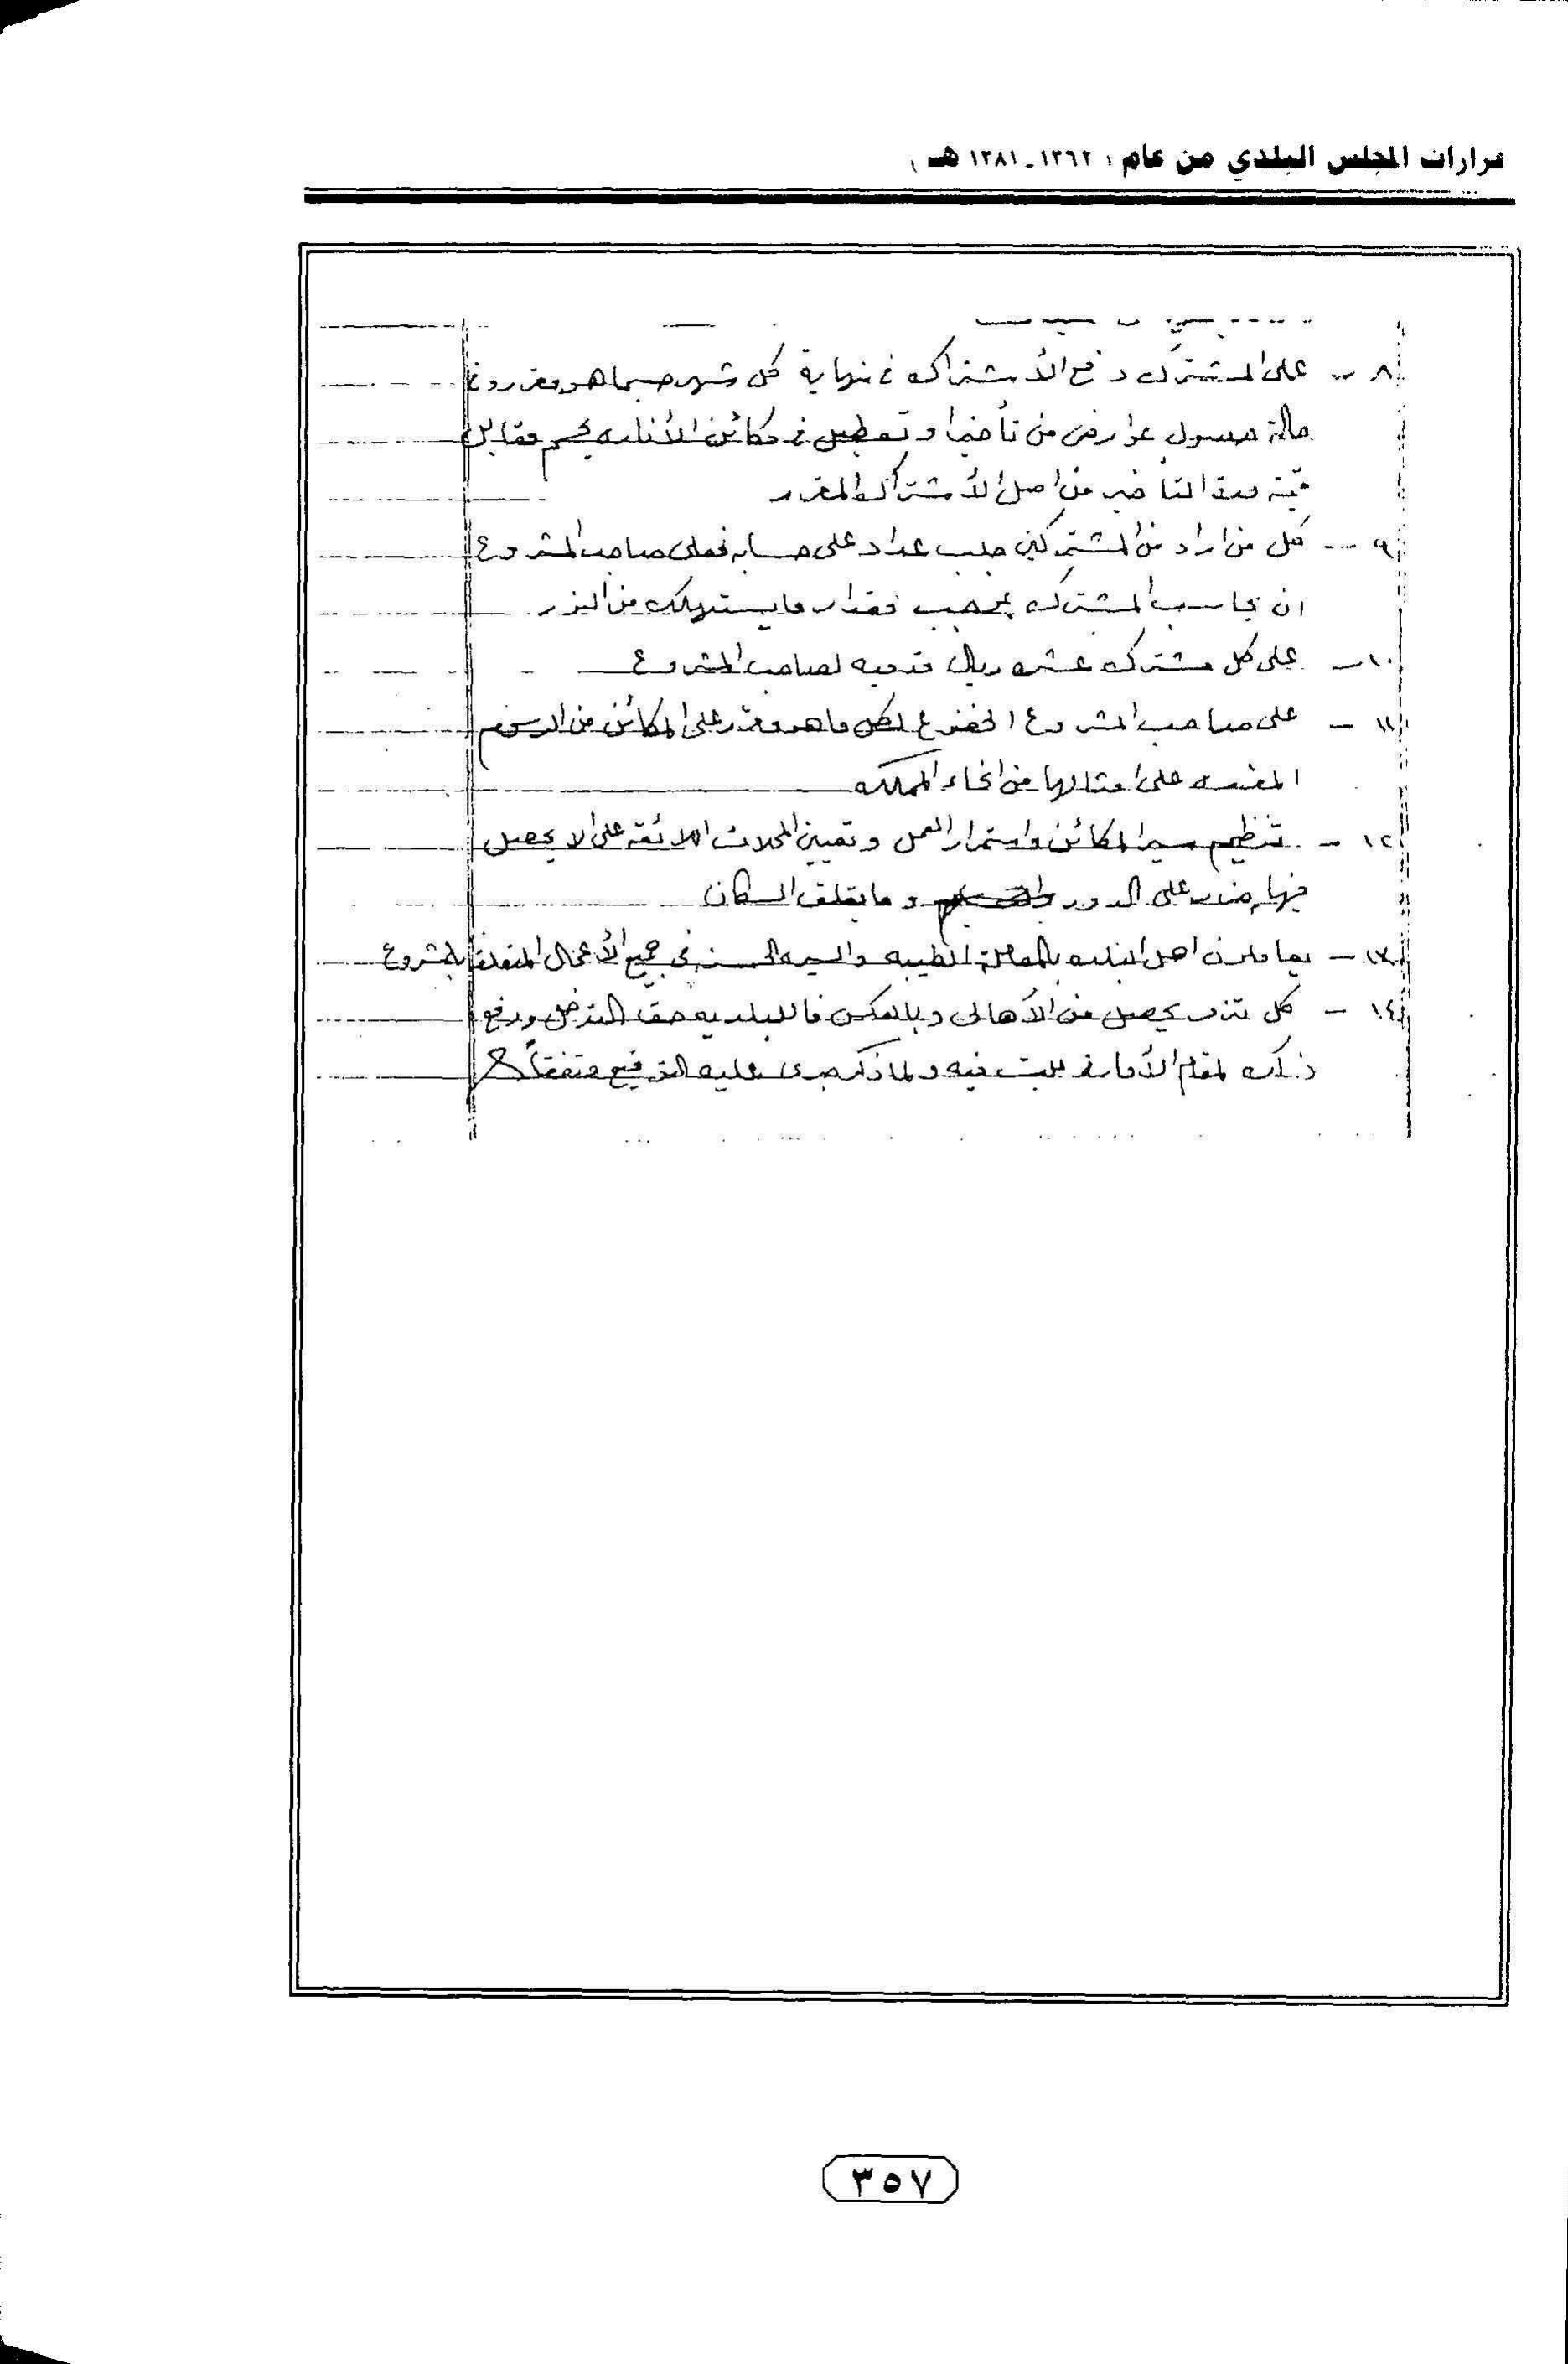 قرارات المجلس البلدي من عام ( ١٣٦٢ - ١٣٨١ هـ )
٨ - على المشترك دفع الأشتراك في نهاية كل شهر حسبما هو مقرر وفي
حالة حصول عوارض من تأخير او تعطيل في مكائن الأناره يحسم مقابل
قيمة مدة التأخير من اصل الأشتراك المقرر
٩ - كل من اراد من المشتركين جلب عداد على حسابه فعلى صاحب المشروع
ان يحاسب المشترك بموجب مقدار ما يستهلك من النور
١٠ - على كل مشترك عشره ريال قدميه لصاحب المشروع
١١ - على صاحب المشروع الخضوع لكل ما هو مقرر على المكائن من الرسوم
المقرره على امثالها من انحاء المملكه
١٢ - تنظيم سير المكائن واستمرار العمل وتعيين المحلات اللائقه على الا يحصل
فيها ضرر على الدور وما يقلق السكان
١٣ - يعاملون اهل البلده بالمعاملة الطيبه والسيره الحسنه في جميع الأعمال المتعلقة بالمشروع
١٤ - كل تذمر يحصل من الأهالى وبالعكس فاللبلديه حق التدخل ورفع
ذلك لمقام الأمارة للبت فيه ولما ذكر جرى عليه التوقيع متفقاً
٣٥٧